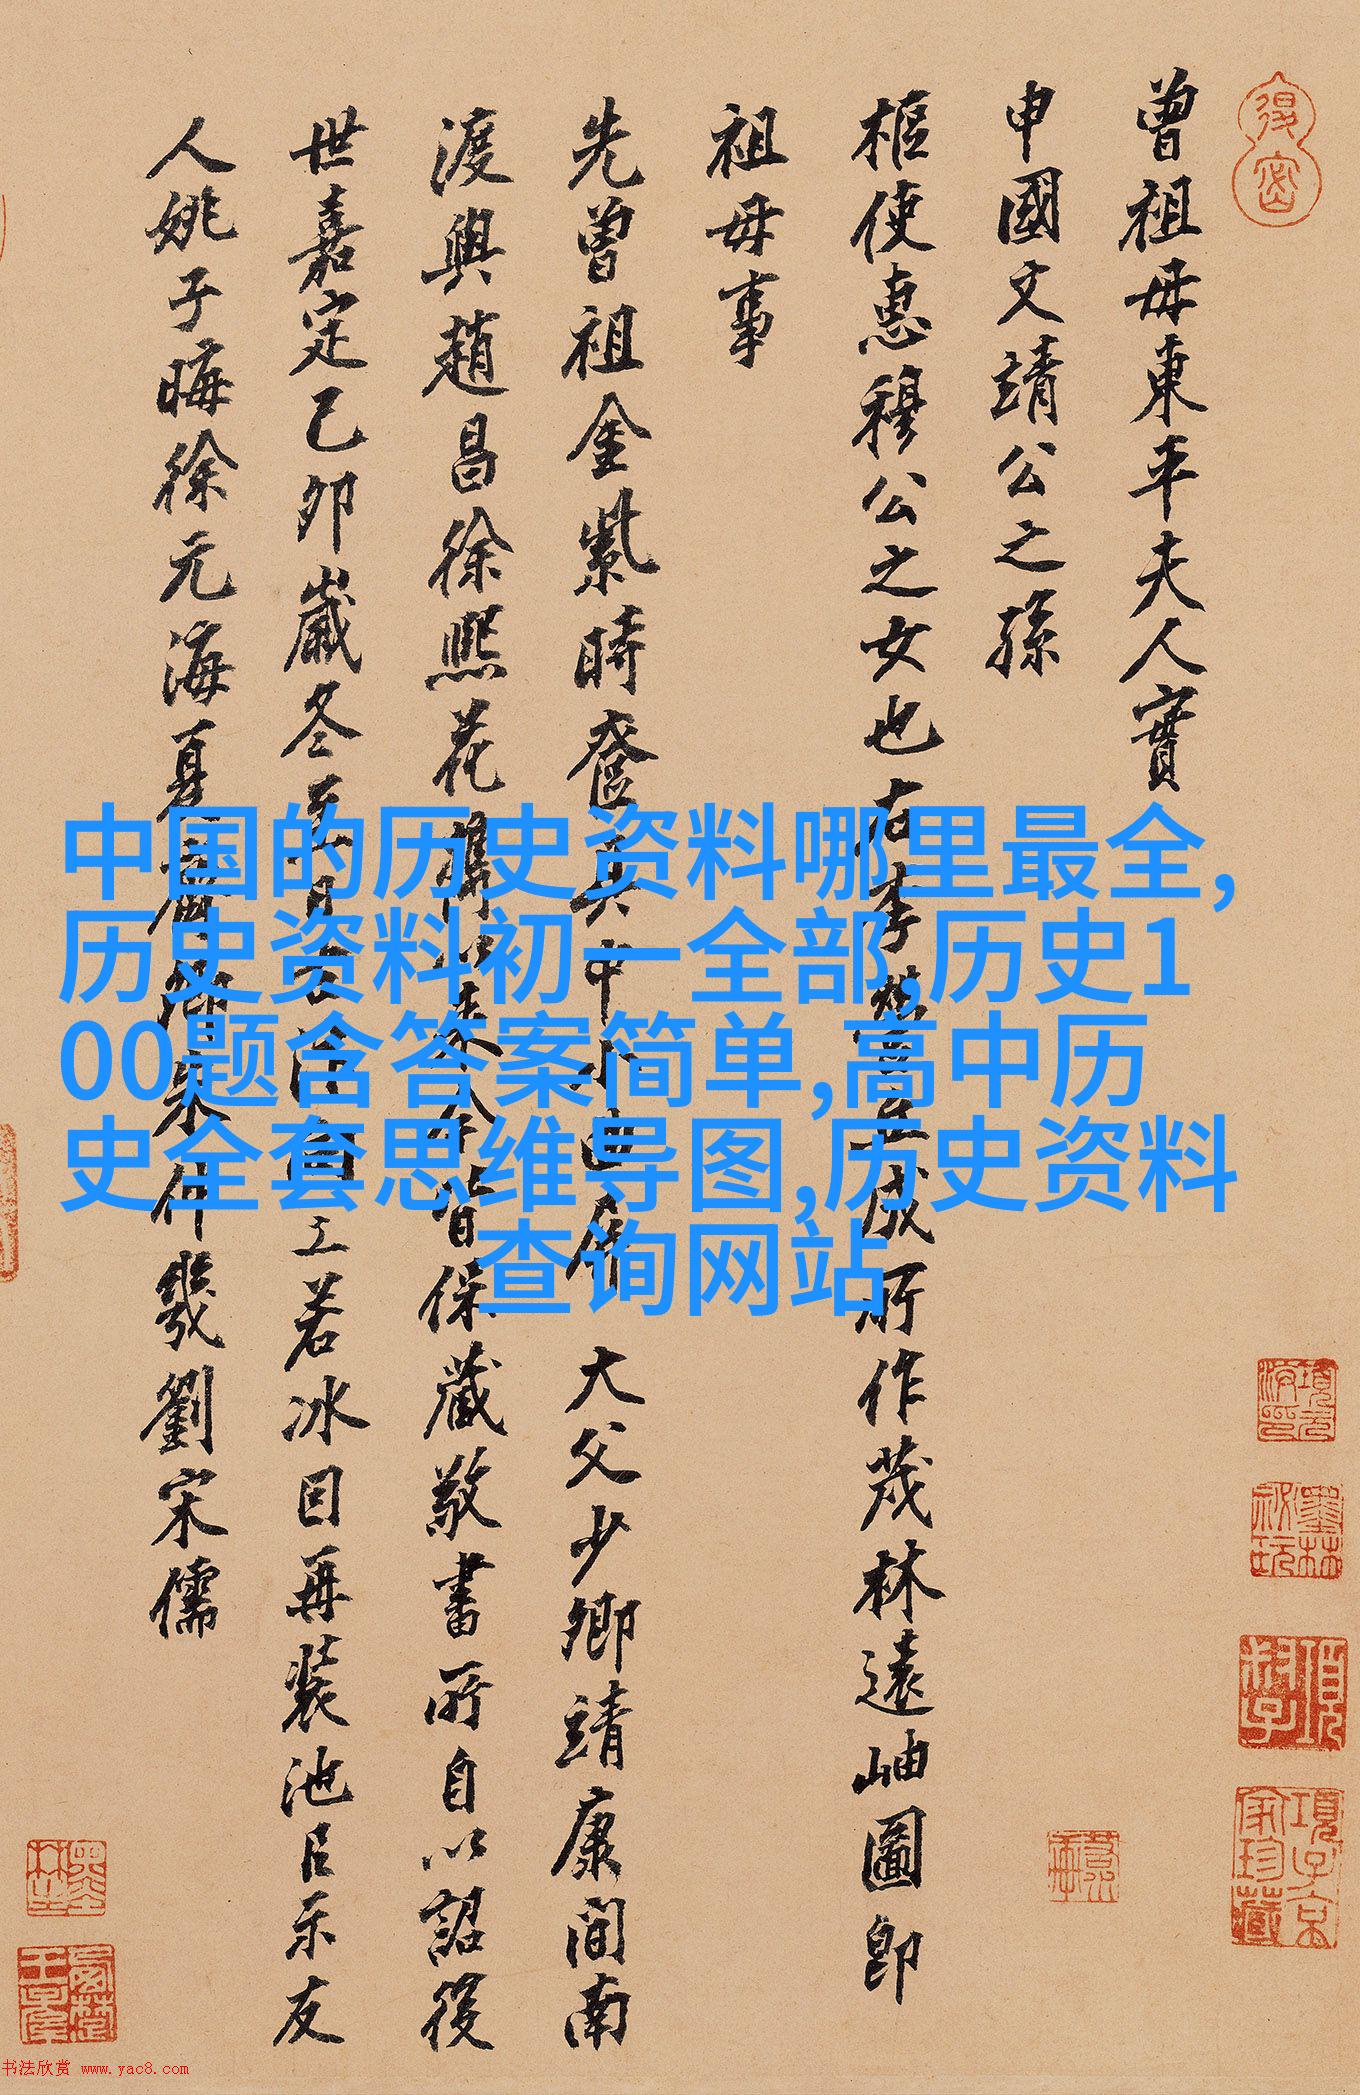 曾祖母東平夫人實
申國文靖公之孫
樞使惠穆公之女也右李營丘咸所作茂林遠岫圖即
祖母事
先曾祖金紫時奩具中小曲屏大父少卿靖康間南
渡與趙昌徐熙花攜以來今皆保藏敬書所自以詔後
世嘉定己卯嵗冬至日公洽自工若冰因再裝池呂示友
人姚子晦徐元海夏卿仲幾劉宋儒
中国的历史资料哪里最全,
历史资料初一全部,历史1
00题含答案简单,高中历
史全套思维导图,历史资料
查询网站
书法欣赏 www.yac8.com